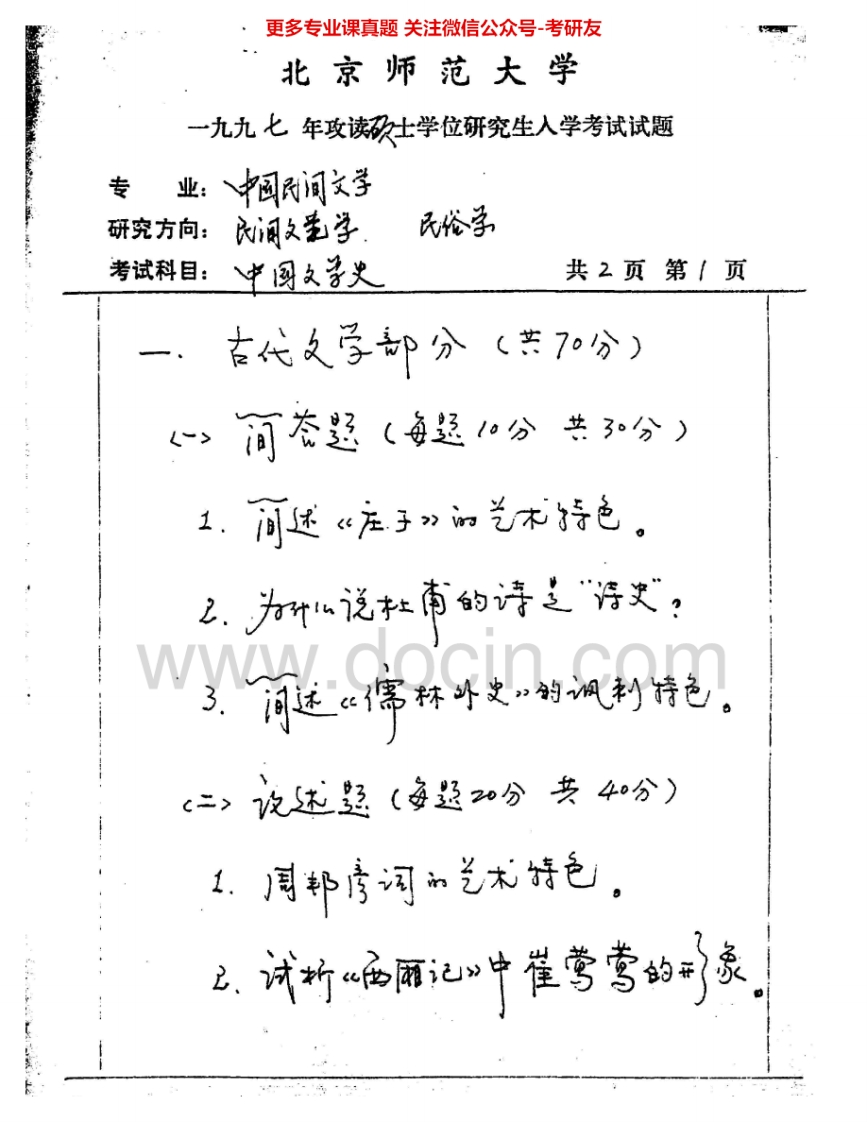 更多专业课真题 关注微信公众号-考研友
北京师范大学
一九九七年攻读硕士学位研究生入学考试试题
专 业：中国民间文学
研究方向：民间文艺学 民俗学
考试科目：中国文学史 共2页 第1页
一. 古代文学部分（共70分）
<一> 简答题（每题10分 共30分）
1. 简述《庄子》的艺术特色。
2. 为什么说杜甫的诗是“诗史”？
www.docin.com
3. 简述《儒林外史》的讽刺特色。
<二> 论述题（每题20分 共40分）
1. 周邦彦词的艺术特色。
2. 试析《西厢记》中崔莺莺的形象。